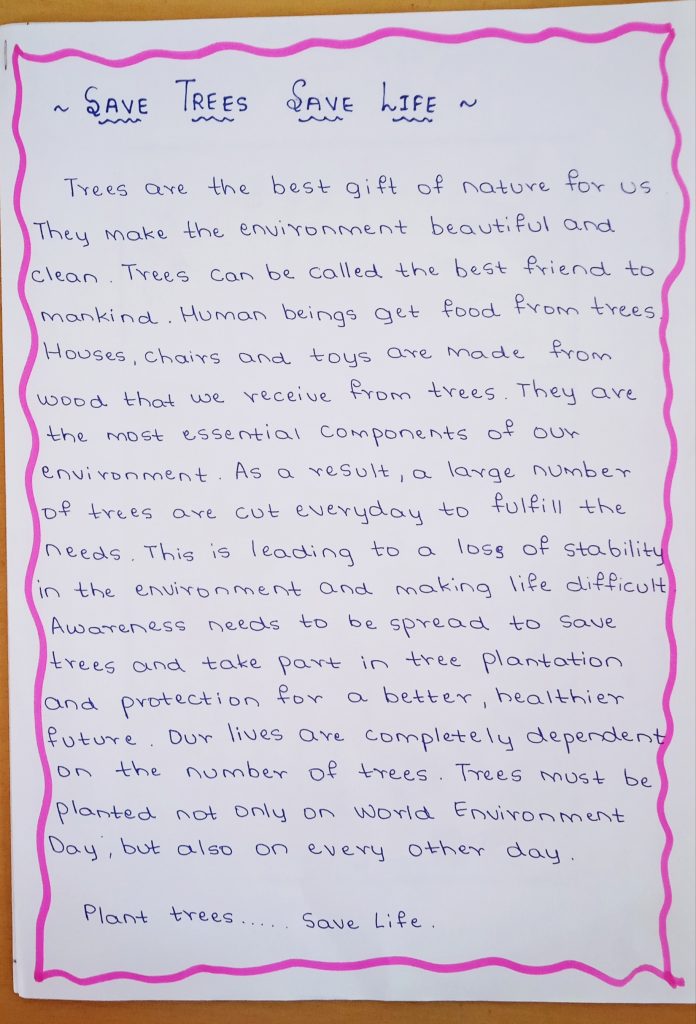 ~ SAVE TREES SAVE LIFE ~
Trees are the best gift of nature for us
They make the environment beautiful and
clean. Trees can be called the best friend to
mankind. Human beings get food from trees.
Houses, chairs and toys are made from
wood that we receive from trees. They are
the most essential components of our
environment. As a result, a large number
of trees are cut everyday to fulfill the
needs. This is leading to a loss of stability
in the environment and making life difficult.
Awareness needs to be spread to save
trees and take part in tree plantation
and protection for a better, healthier
future. Our lives are completely dependent
on the number of trees. Trees must be
planted not only on World Environment
Day, but also on every other day.
Plant trees..... Save Life.